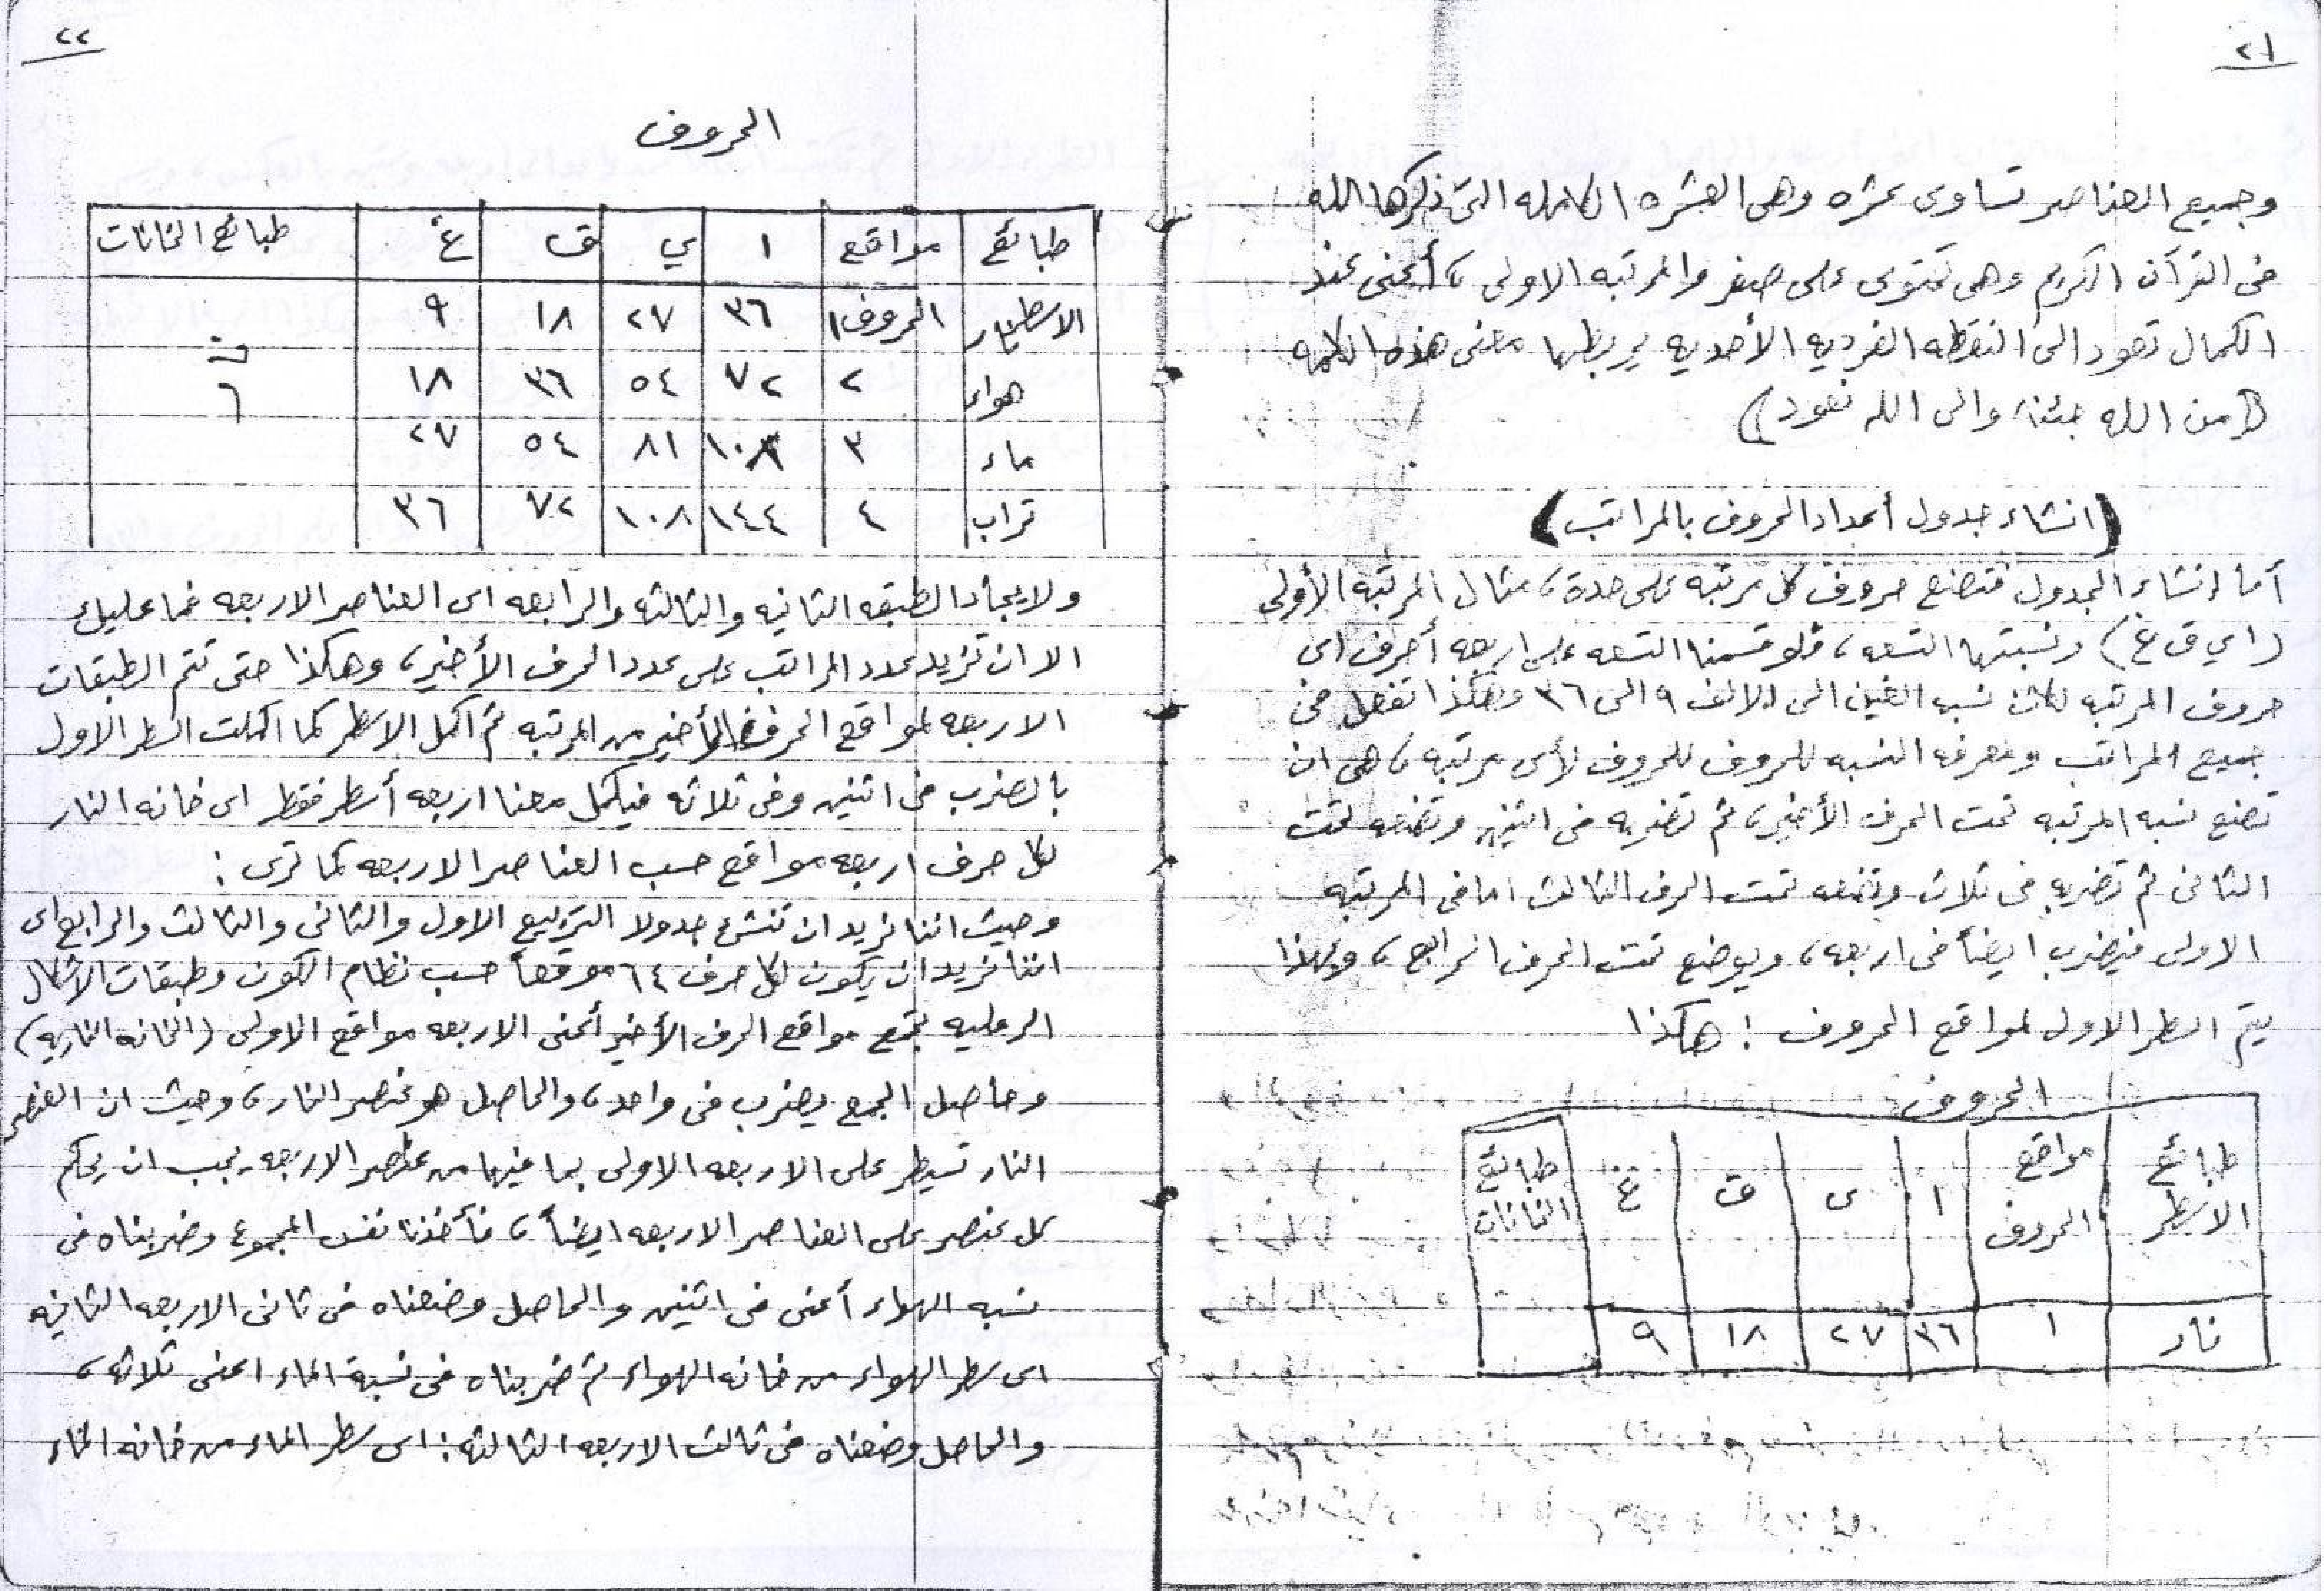 ٢١
وجميع العناصر تساوى عشره وهى العشره الكامله التى ذكرها الله
فى القرآن الكريم وهى تحتوى على صفر والمرتبه الاولى، أعنى عند
الكمال تعود الى النقطه الفرديه الأحديه يربطها معنى هذه الكلمه
((من الله جئنا والى الله نعود))
(انشاء جدول أعداد الحروف بالمراتب)
أما إنشاء الجدول فتضع حروف كل مرتبه على حدة، مثال المرتبه الأولى
(اي ق غ) ونسبتها التسعه، فلو قسمنا التسعه على اربعه أحرف اى
حروف المرتبه لكان نسبه الغين الى الالف ٩ الى ٣٦ وهكذا تفعل فى
جميع المراتب ومعرفه النسبه للحروف للحروف لأى مرتبه، هى ان
تضع نسبه المرتبه تحت الحرف الأخير، ثم تضربه فى اثنين وتضعه تحت
الثانى ثم تضربه فى ثلاث وتضعه تحت الحرف الثالث اما فى المرتبه
الاولى فيضرب ايضاً فى اربعه، ويوضع تحت الحرف الرابع، وبهذا
يتم السطر الاول لمواقع الحروف : هكذا
الحروف
طبائع الاسطر | مواقع الحروف | ا | ى | ق | غ | طبائع الخانات
نار | ١ | ٣٦ | ٢٧ | ١٨ | ٩
٢٢
الحروف
طبائع | مواقع | ا | ي | ق | غ | طبائع الخانات
الاسطر نار | الحروف ١ | ٣٦ | ٢٧ | ١٨ | ٩
هواء | ٢ | ٧٢ | ٥٤ | ٣٦ | ١٨
ماء | ٣ | ١٠٨ | ٨١ | ٥٤ | ٢٧
تراب | ٤ | ١٤٤ | ١٠٨ | ٧٢ | ٣٦
ولايجاد الطبقه الثانيه والثالثه والرابعه اى العناصر الاربعه فما عليك
الا ان تزيد عدد المراتب على عدد الحرف الأخير، وهكذا حتى تتم الطبقات
الاربعه لمواقع الحرف الأخير من المرتبه ثم اكمل الاسطر كما اكملت السطر الاول
بالضرب فى اثنين وفى ثلاثه فيكمل معنا اربعه أسطر فقط اى خانه النار
لكل حرف اربعه مواقع حسب العناصر الاربعه كما ترى :
وحيث اننا نريد ان ننشىء جدولا التربيع الاول والثانى والثالث والرابع اى
اننا نريد ان يكون لكل حرف ٦٤ موقعاً حسب نظام الكون وطبقات الاشكال
الرمليه نجمع مواقع الحرف الأخير أعنى الاربعه مواقع الاولى (الخانه الناريه)
وحاصل الجمع يضرب فى واحد، والحاصل هو عنصر النار، وحيث ان العنصر
النار تسيطر على الاربعه الاولى بما فيها من عناصر الاربعه يجب ان يحكم
كل عنصر على العناصر الاربعه ايضاً، فأخذنا نفس المجموع وضربناه فى
نسبه الهواء أعنى فى اثنين والحاصل وضعناه فى ثانى الاربعه الثانيه
اى سطر الهواء من خانه الهواء ثم ضربناه فى نسبة الماء اعنى ثلاثه،
والحاصل وضعناه فى ثالث الاربعه الثالثه: اى سطر الماء من خانه الماء